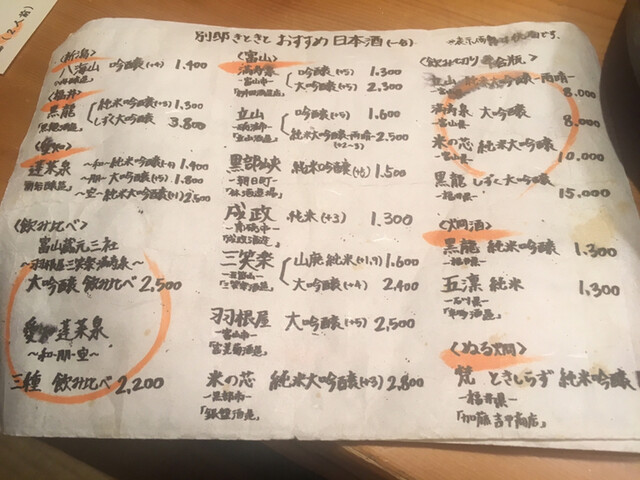 (2人前)
別邸きときと おすすめ 日本酒(一合)
※表示価格は税抜です。
<新潟>
八海山 吟醸(+4) 1.400
<福井>
黒龍
純米吟醸(+3) 1.300
しずく大吟醸 3.800
<愛知>
蓬莱泉
~和~純米吟醸 1.400
~朋~大吟醸(+5) 1.800
~空~純米大吟醸 2,500
<飲み比べ>
富山蔵元三社
~羽根屋三笑楽満寿泉~
大吟醸 飲み比べ 2,500
愛 蓬莱泉
~和・朋・空~
三種 飲み比べ 2,200
<富山>
満寿泉
-富山市-
吟醸(+5) 1.300
大吟醸(+5) 2.300
立山
-砺波市-
「立山酒造」
吟醸(+5) 1.600
純米大吟醸-雨晴-2,500
黒部峡 純米吟醸 1.500
-朝日町-
「林酒造場」
成政 純米(+3) 1.300
-南砺市-
「成政酒造」
三笑楽
「三笑楽酒造」
山廃純米 1.600
大吟醸(+4) 2,400
羽根屋 大吟醸(+5) 2,500
-富山市-
「富美菊酒造」
米の芯 純米大吟醸(+3) 2,800
-黒部市-
「銀盤酒造」
立山 純米大吟醸-雨晴-
-富山県-
8.000
満寿泉 大吟醸
-富山県-
8.000
米の芯 純米大吟醸
-富山県-
10,000
黒龍 しずく大吟醸
-福井県-
15,000
<燗酒>
黒龍 純米吟醸 1,300
-福井県-
五凛 純米 1,300
-石川県-
「車多酒造」
<ぬる燗>
梵 ときしらず 純米吟醸
-福井県-
「加藤吉平商店」